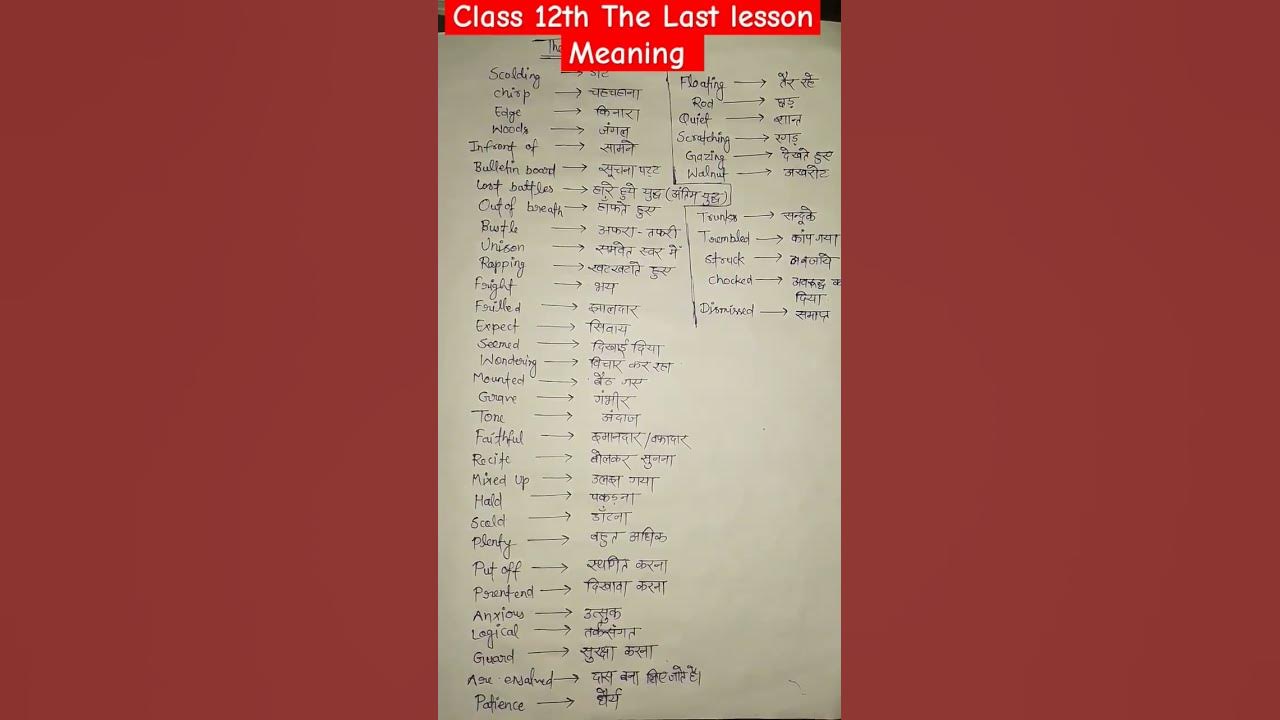 Class 12th The Last lesson
Meaning
The
Scolding → डाँट
Chirp → चहचहाना
Edge → किनारा
Woods → जंगल
Infront of → सामने
Bulletin board → सूचना पट्ट
Lost battles → हारे हुये युद्ध (अंतिम युद्ध)
Out of breath → हाँफते हुए
Bustle → अफरा-तफरी
Unison → समवेत स्वर में
Rapping → खटखटाते हुए
Fright → भय
Frilled → झालदार
Expect → सिवाय
Seemed → दिखाई दिया
Wondering → विचार कर रहा
Mounted → बैठ गए
Grave → गंभीर
Tone → अंदाज
Faithful → ईमानदार/वफादार
Recite → बोलकर सुनना
Mixed up → उलझ गया
Hald → पकड़ना
Scold → डाँटना
Plenty → बहुत अधिक
Put off → स्थगित करना
Prentend → दिखावा करना
Anxious → उत्सुक
Logical → तर्कसंगत
Guard → सुरक्षा करना
Are enslaved → दास बना लिए जाते है।
Patience → धैर्य
Floating → तैर रहे
Rod → छड़
Quiet → शान्त
Scratching → रगड़
Gazing → देखते हुए
Walnut → अखरोट
Trunks → सन्दूके
Trembled → कांप गया
Struck →
Chocked → अवरूद्ध क
दिया
Dismissed → समाप्त